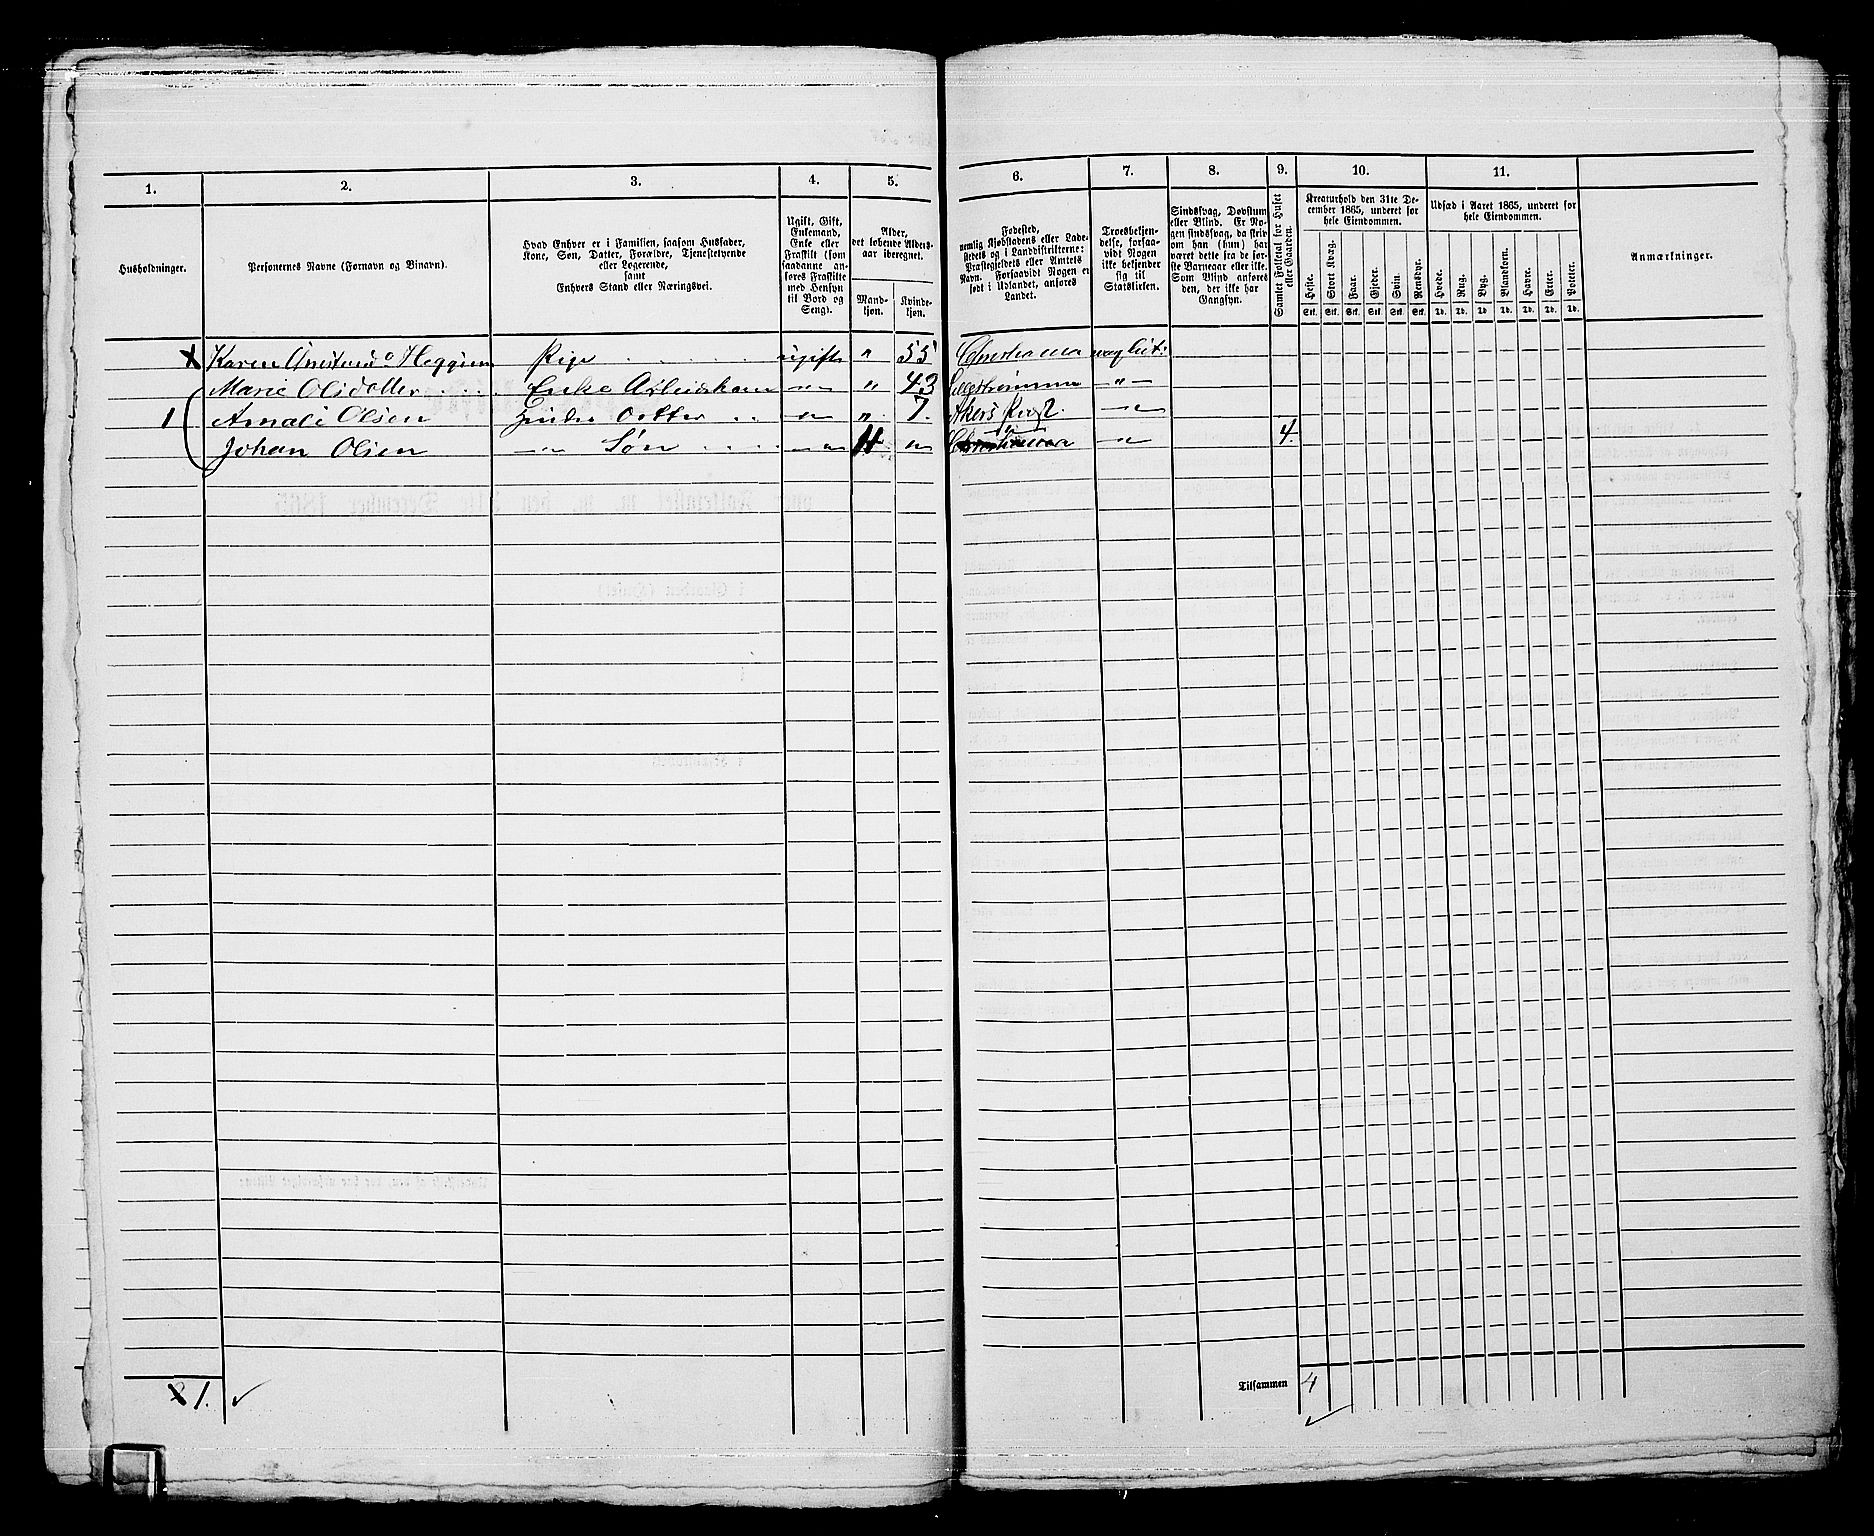 1.
2.
3.
4.
5.
6.
7.
8.
9.
10.
11.
Husholdninger.
Personernes Navne (Fornavn og Binavn).
Hvad Enhver er i Familien, saasom Husfader,
Kone, Søn, Datter, Forældre, Tjenestetyende
eller Logerende,
samt
Enhvers Stand eller Næringsvei.
Ugift, Gift,
Enkemand,
Enke eller
Fraskilt (som
saadanne an-
føres Fraskilte
med Hensyn
til Bord og
Seng).
Alder,
det løbende Alders-
aar iberegnet.
Mand-
kjøn.
Kvinde-
kjøn.
Fødested,
nemlig Kjøbstadens eller Lade-
stedets og i Landdistrikterne:
Præstegjeldets eller Amtets
Navn. Forsaavidt Nogen er
født i Udlandet, anføres
Landet.
Troesbekjen-
delse, forsaa-
vidt Nogen
ikke bekjender
sig til
Statskirken.
Sindssvag, Døvstum
eller Blind. Er No-
gen sindssvag, da skriv
om han (hun) har
været dette fra de før-
ste Barneaar eller ikke.
Som Blind anføres
den, der ikke har
Gangsyn.
Samlet Folketal for Huset
eller Gaarden.
Kreaturhold den 31te De-
cember 1865, underet for
hele Eiendommen.
Heste.
Stort Kvæg.
Faar.
Gjeder.
Sviin.
Rensdyr.
Stk. Stk. Stk. Stk. Stk. Stk.
Udsæd i Aaret 1865, underet for
hele Eiendommen.
Hvede.
Rug.
Byg.
Blandkorn.
Havre.
Erter.
Poteter.
Td. Td. Td. Td. Td. Td. Td.
Anmærkninger.
x Karen Heggum Pige ugift " 55
Marie Olsdatter Enke " 43 — " —
1 Amali Olsen Datter " 7. Akers
Johan Olsen Søn 4.
1.
Tilsammen 4